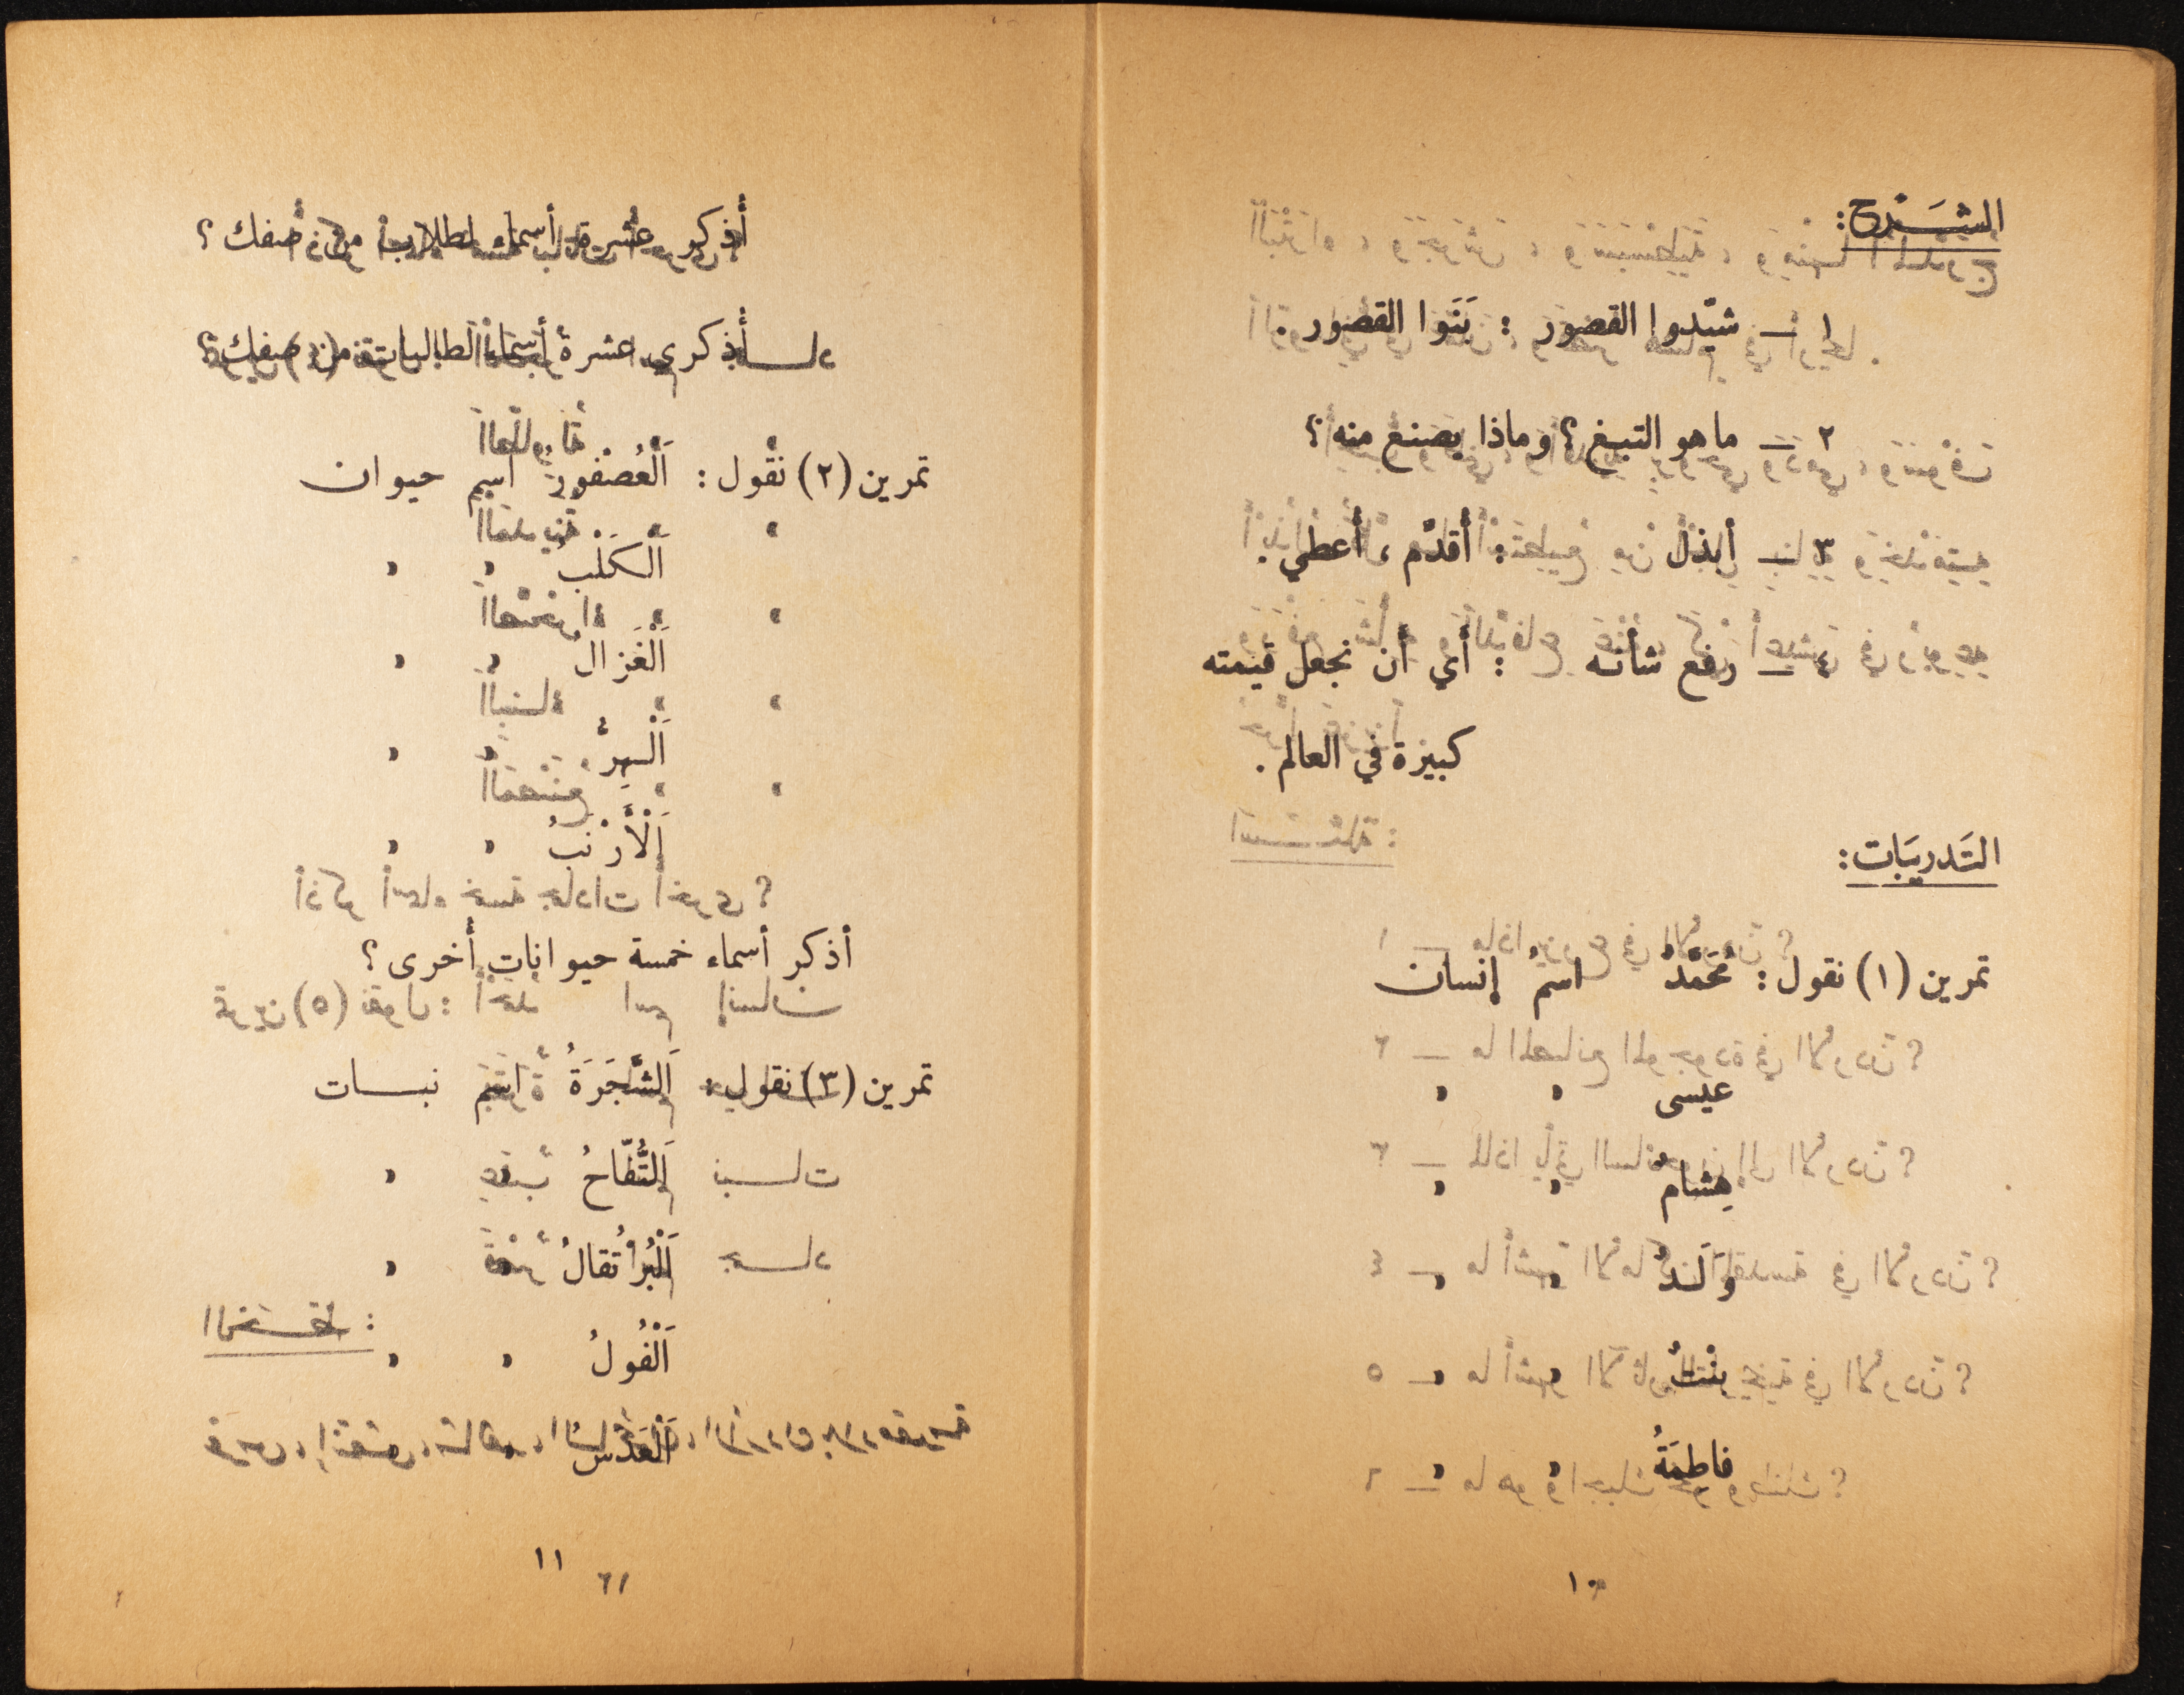 الشرح:
١ — شيّدوا القصور : بَنَوا القصور .
٢ — ما هو التبغ ؟ وماذا يصنع منه ؟
٣ — أبذل : أقدّم ، أعطي .
٤ — رفع شأنه : أي أن نجعل قيمته
كبيرة في العالم .
التَدريبَات :
تمرين (١) نقول : مُحَمَّدٌ اسمُ إنسان
عيسى " "
هِشامٌ " "
وَلَدٌ " "
بِنْتٌ " "
فاطِمَةُ " "
١٠
أُذكر عشرة أسماء لطلاب من صفك ؟
أُذكري عشرة أسماء لطالبات من صفك ؟
تمرين (٢) نقول : اَلْعُصْفورُ اسم حيوان
اَلْكَلْبُ " "
اَلْغَزالُ " "
اَلْهِرُّ " "
اَلْأَرْنَبُ " "
أذكر أسماء خمسة حيوانات أُخرى ؟
تمرين (٣) نقول : اَلشَّجَرَةُ اسم نبات
اَلتُّفّاحُ "
اَلْبُرْتُقالُ " "
اَلْفُولُ " "
اَلْعَدَسُ "
١١